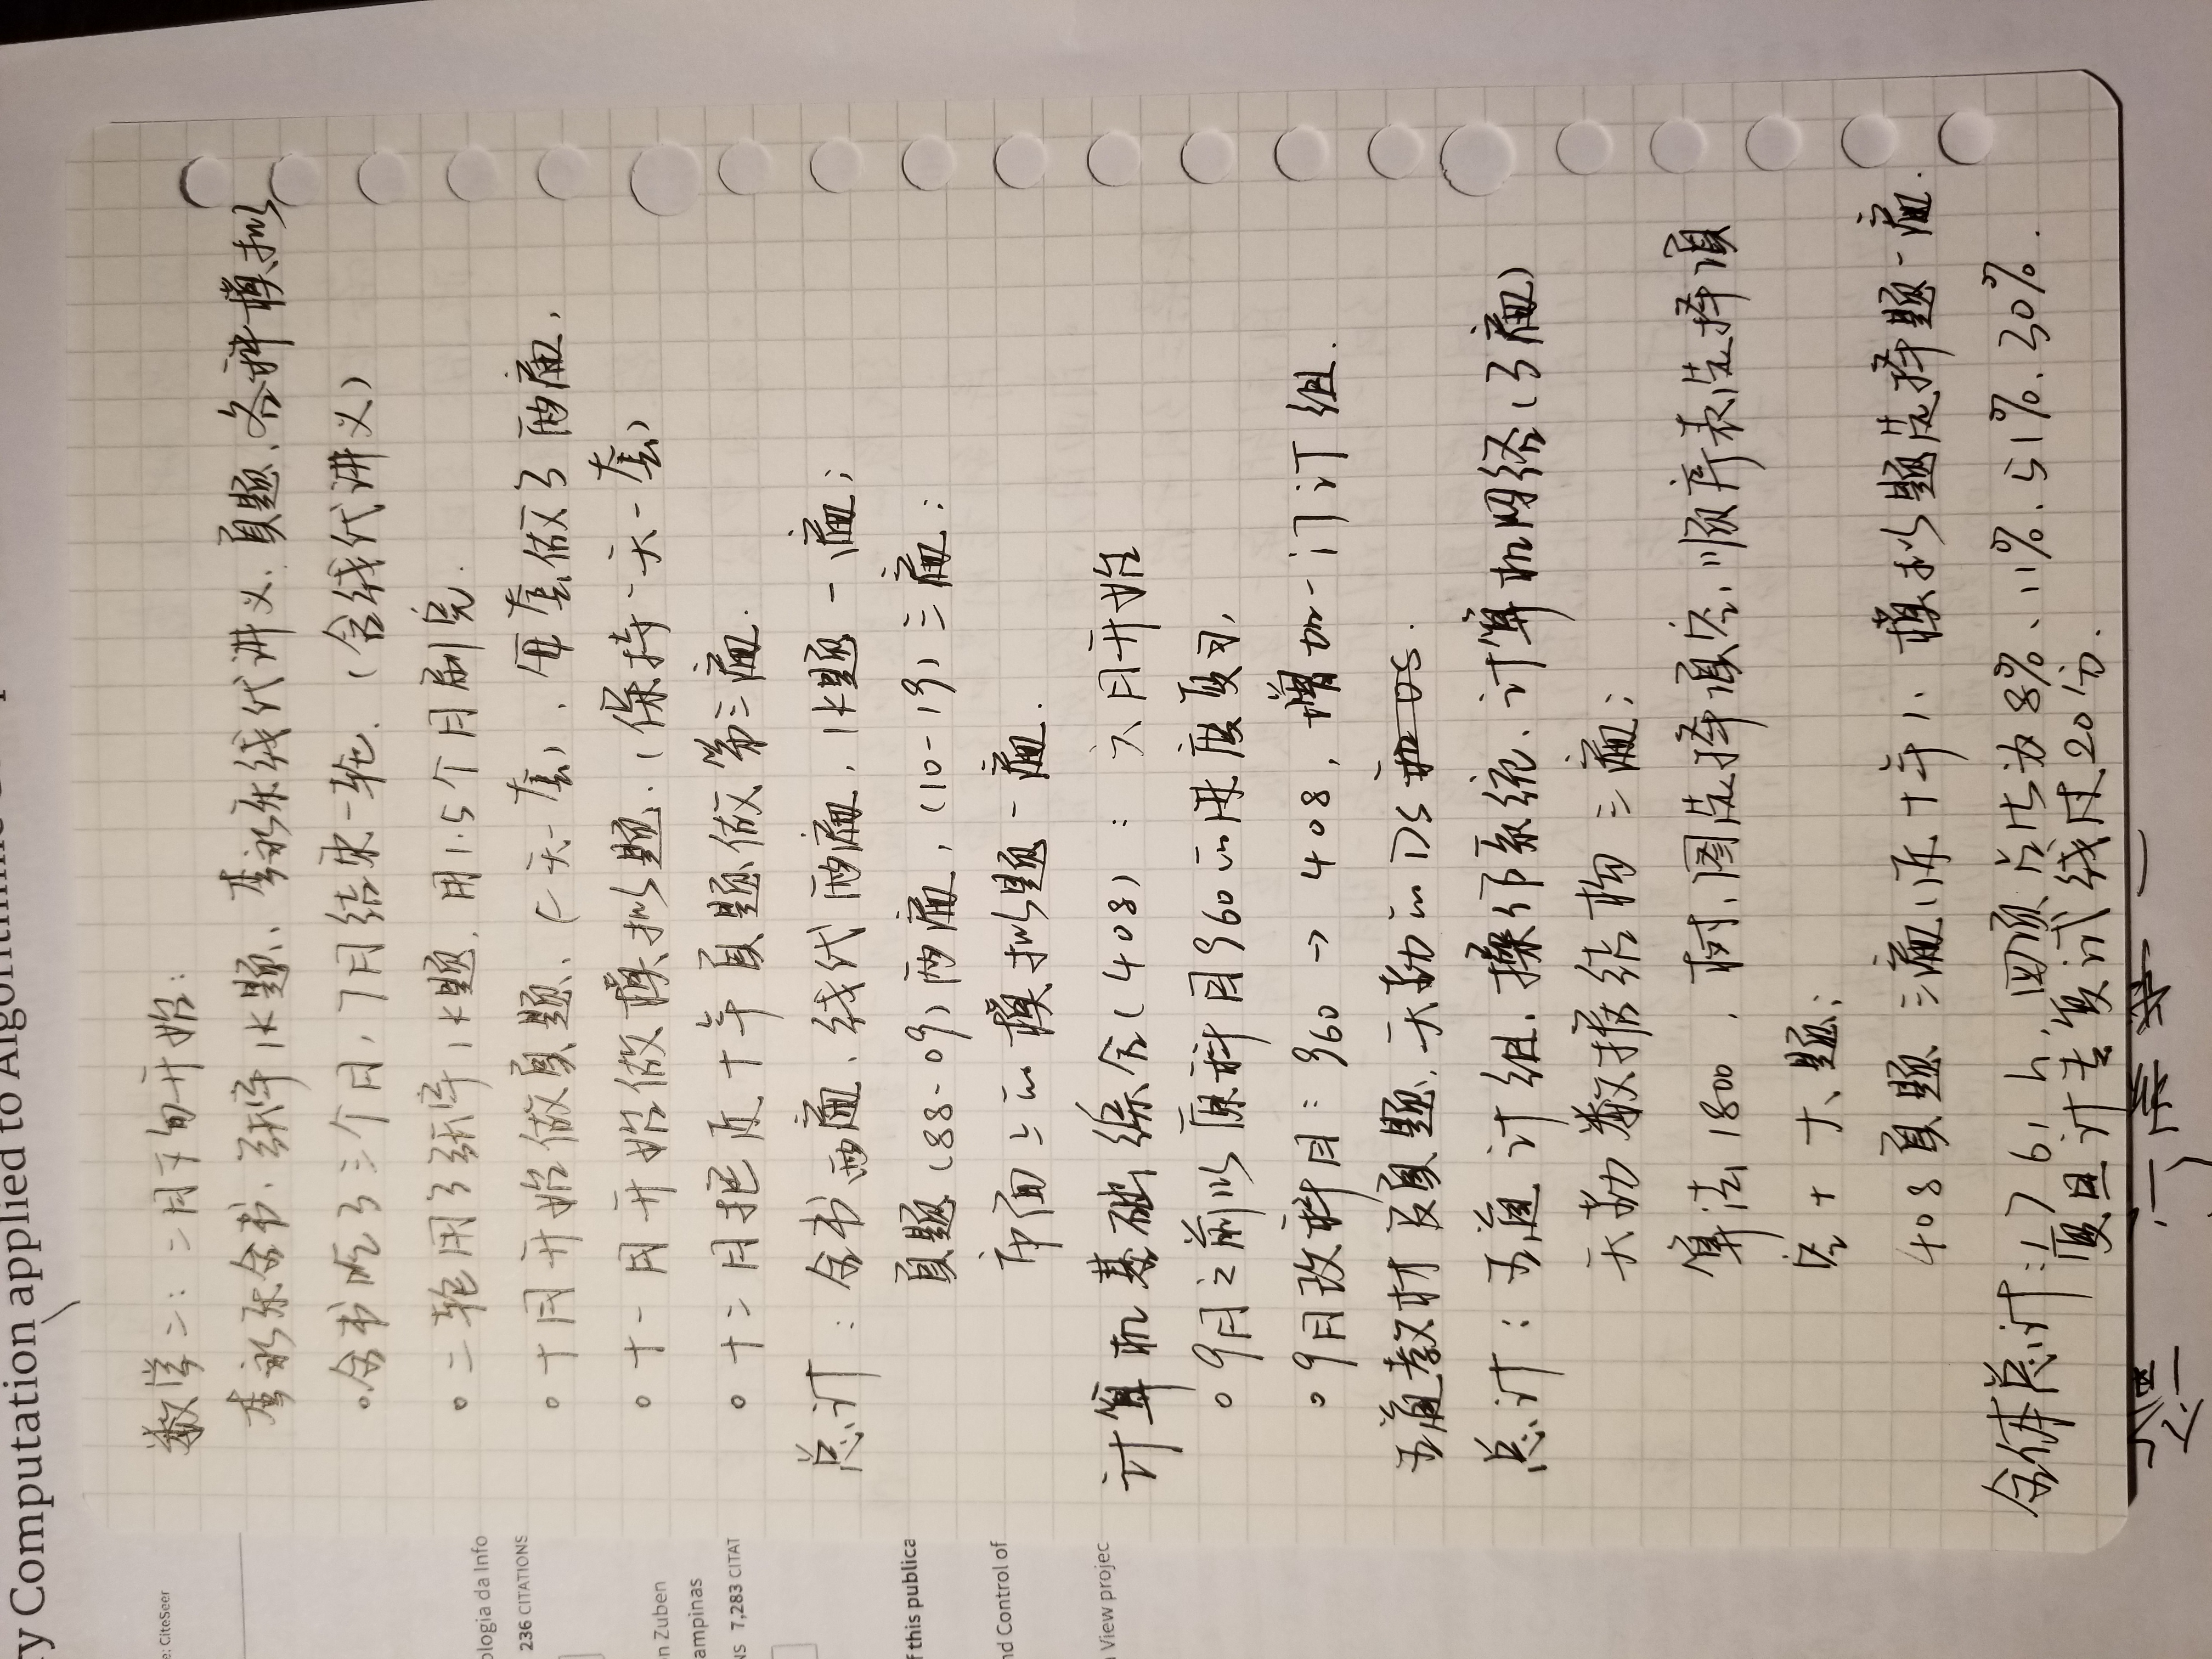 ry Computation applied to Algorithmic Comp
e: CiteSeer
ologia da Info
236 CITATIONS
on Zuben
ampinas
NS 7,283 CITAT
f this publica
nd Control of
View projec
数学二: 二月下旬开始:
李永乐全书、张宇1k题、李永乐线代讲义、真题、各种模拟
。全书吃了三个月, 7月结束一轮.（含线代讲义）
。二轮用了张宇1k题, 用1.5个月刷完.
。十月开始做真题、(一天一套), 每套做了两遍,
。十一月开始做模拟题.(保持一天一套)
。十二月把近十年真题做第三遍.
总计: 全书两遍、线代两遍, 1k题一遍;
真题(88-09)两遍, (10-19)三遍;
市面上的模拟题一遍.
计算机基础综合(408): 六月开始
。9月之前以原科目960的进度复习,
。9月改科目: 960 → 408, 增加一门计组.
王道教材及真题, 天勤的DS 和OS.
总计: 王道计组、操作系统、计算机网络(3遍)
天勤数据结构三遍;
算法1800, 树、图选择填空、顺序表选择填
空+大题;
408真题三遍(近十年)、模拟题选择题一遍.
全体总计: 1761h, 四项占比为8%、11%、51%、30%.
复旦计专复试线压20分.